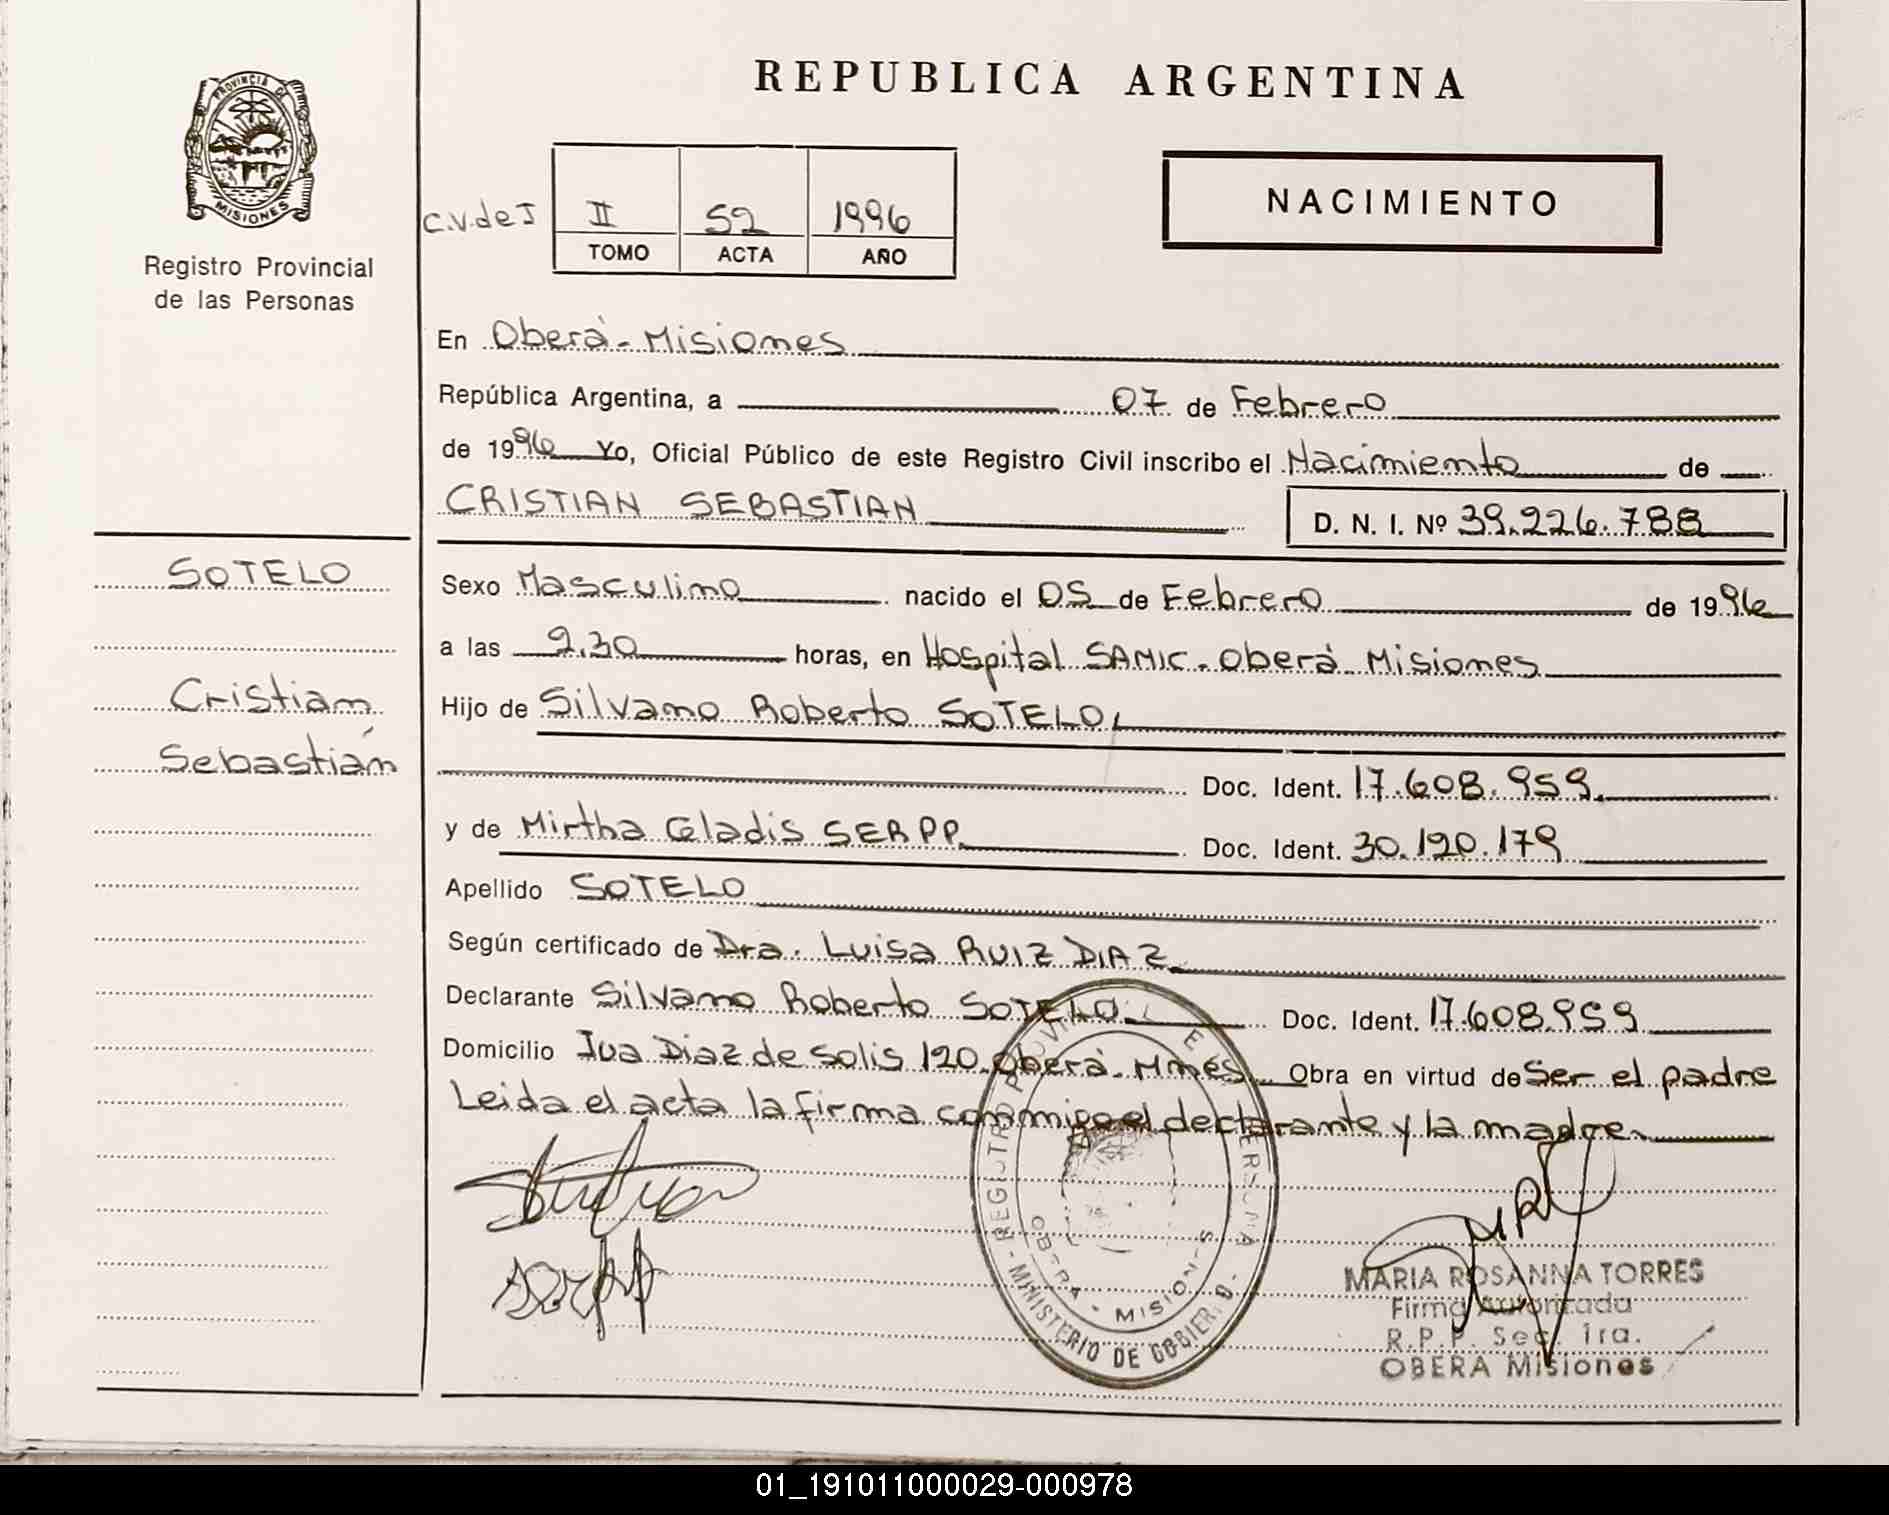 REPUBLICA ARGENTINA
PROVINCIA DE
MISIONES
Registro Provincial
de las Personas
C.V.de I
II 52 1996
TOMO ACTA AÑO
NACIMIENTO
En Oberá - Misiones
República Argentina, a 07 de Febrero
de 1996 Yo, Oficial Público de este Registro Civil inscribo el Nacimiento de
CRISTIAN SEBASTIAN D. N. I. Nº 39.226.788
SOTELO
Cristian
Sebastián
Sexo Masculino nacido el 05 de Febrero de 1996
a las 9.30 horas, en Hospital SAMIC - Oberá Misiones
Hijo de Silvano Roberto SOTELO,
Doc. Ident. 17.608.959.
y de Mirtha Gladis SERPP Doc. Ident. 30.120.179
Apellido SOTELO
Según certificado de Dra. Luisa RUIZ DIAZ
Declarante Silvano Roberto SOTELO Doc. Ident. 17.608.959
Domicilio Jua Diaz de Solis 120. Oberá - Mnes Obra en virtud de Ser el padre
Leida el acta la firma conmigo el declarante y la madre.
OBERA - MISIONES
MINISTERIO DE GOBIERNO
MARIA ROSANNA TORRES
Firma Autorizada
R.P.P. Sec. 1ra.
OBERA Misiones
01_191011000029-000978